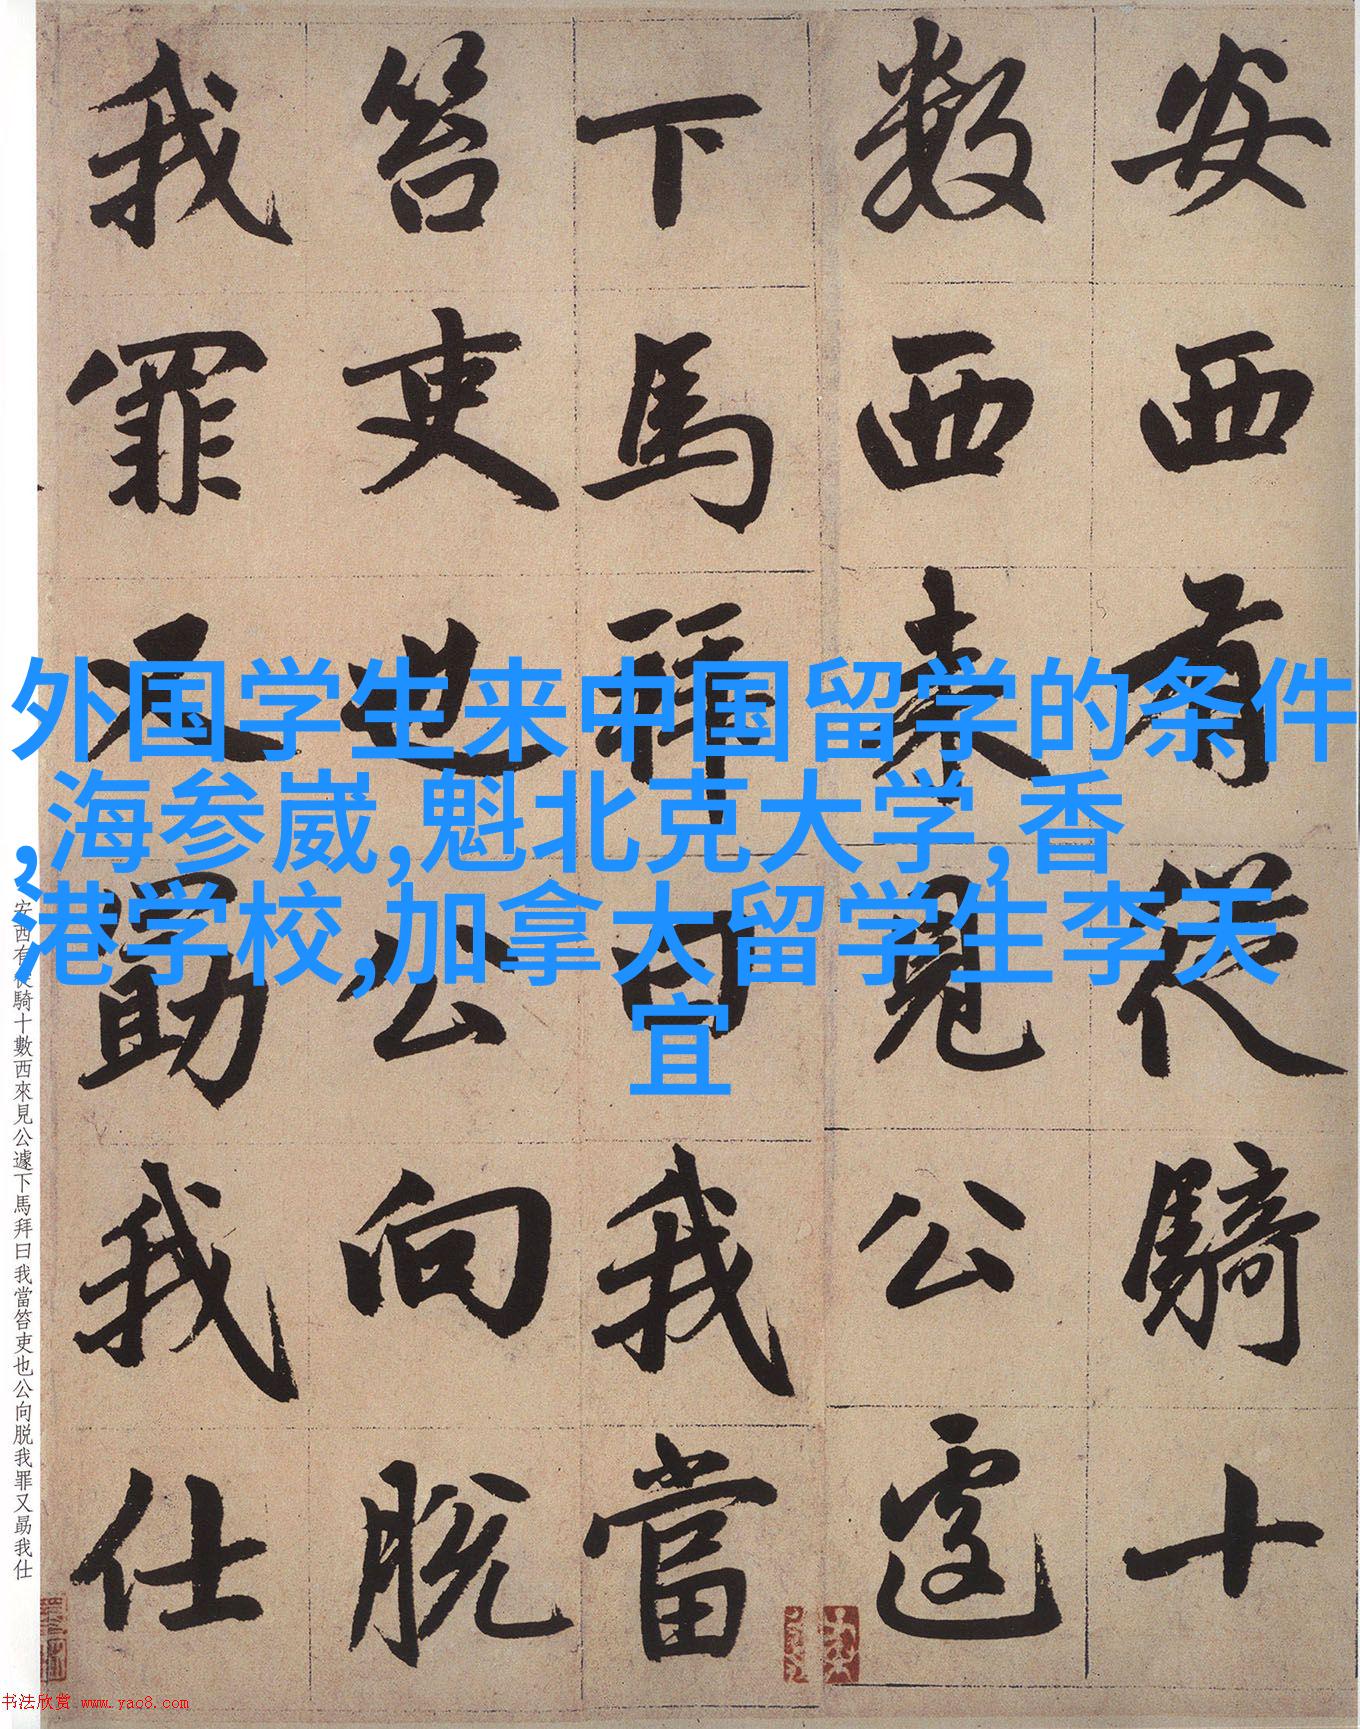 安西有從騎十
数西来見公遽
下馬拜曰我當
笞吏也公向脱
我罪又勗我仕
外国学生来中国留学的条件
,海参崴,魁北克大学,香
港学校,加拿大留学生李天
宜
安西有從騎十數西來見公遽下馬拜曰我當笞吏也公向脱我罪又勗我仕
书法欣赏 www.yac8.com